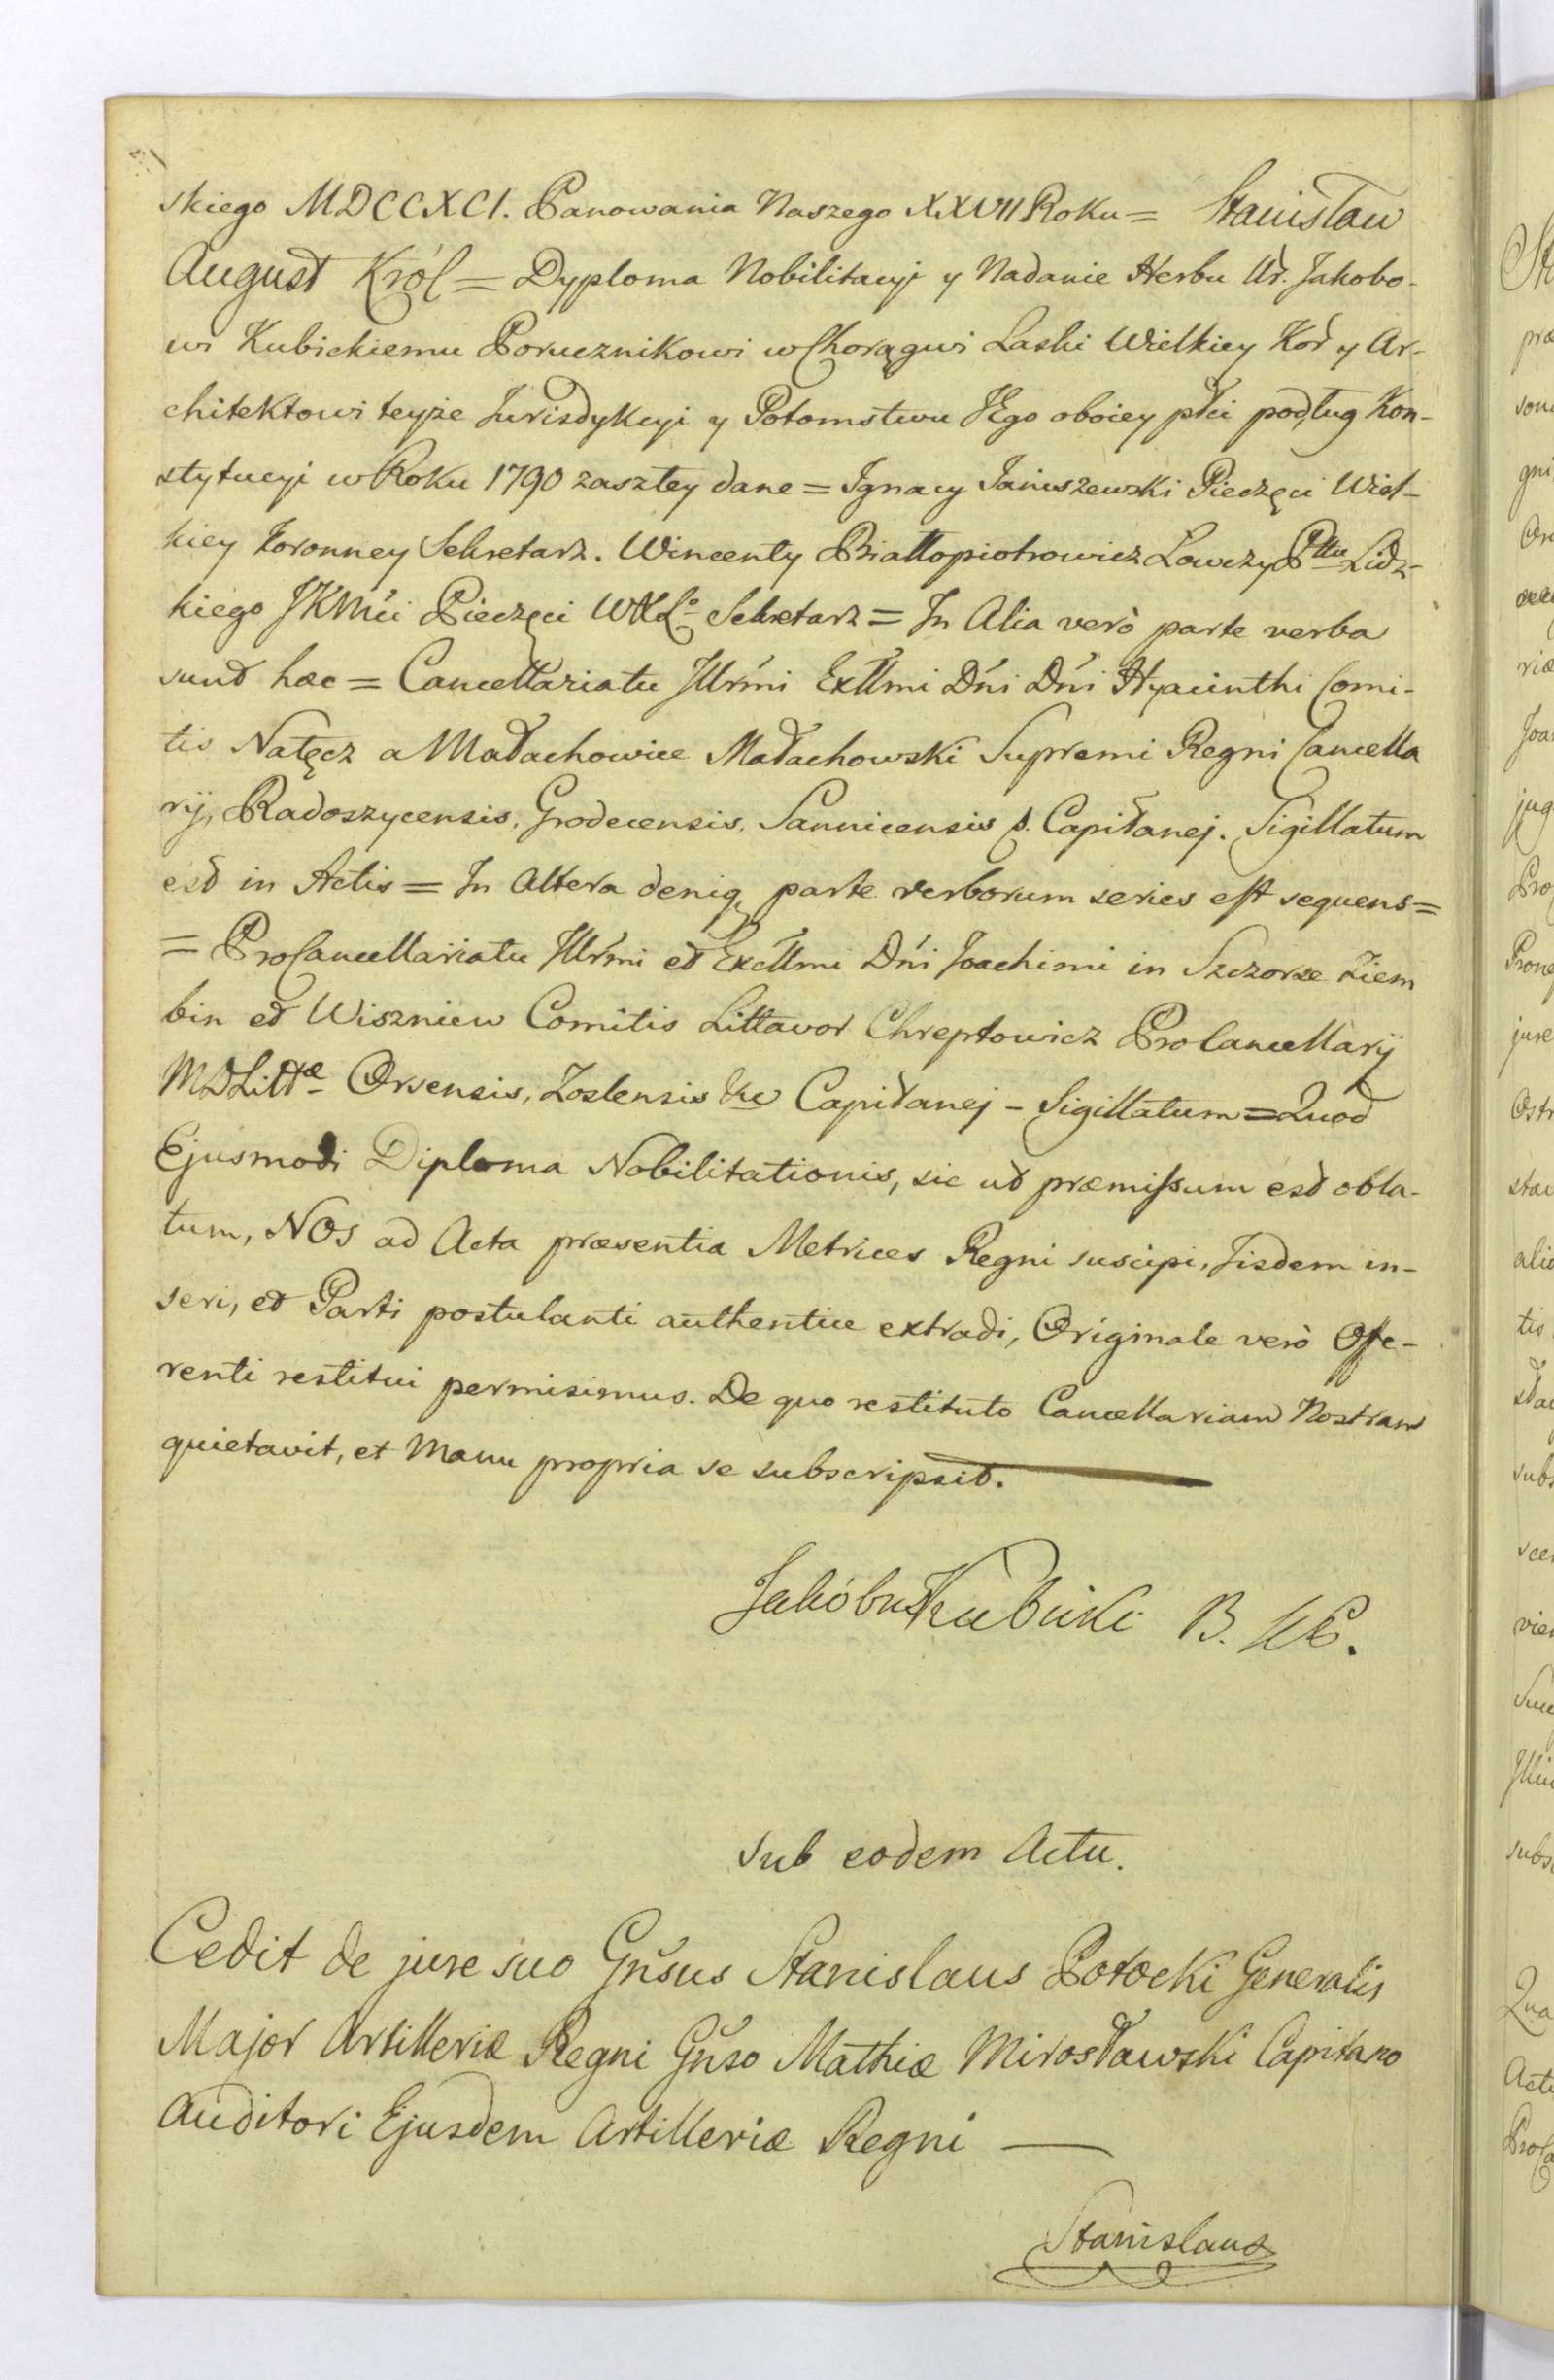 skiego MDCCXCI. Panowania Naszego XXVII Roku = Stanisław
August Król = Dyploma Nobilitacyi y Nadanie Herbu Ur. Jakobo-
wi Kubickiemu Porucznikowi w Chorągwi Laski Wielkiey Kor y Ar-
chitektowi teyże Jurisdykcyi y Potomstwu JEgo oboiey płci podług Kon-
stytucyi w Roku 1790 zaszłey dane = Ignacy Januszewski Pieczęci Wiel-
kiey Koronney Sekretarz. Wincenty Białłopiotrowicz Łowczy Pttu Lidz-
kiego JKMci Pieczęci WXLo Sekretarz = In Alia verò parte verba
sunt haec = Cancellariatu Illrmi Exllmi Dni Dni Hyacinthi Comi-
tis Nałęcz a Małachowice Małachowski Supremi Regni Cancella
rij, Radoszycensis, Grodecensis, Sannicensis &. Capitanej. Sigillatum
est in Actis = In Altera deniq parte verborum series est sequens =
= ProCancellariatu Illrmi et Excllmi Dni Joachimi in Szczorse Ziem
bin et Wiszniew Comitis Littavor Chreptowicz ProCancellarij
MDLittæ Orsensis, Zoslensis &c Capitanej - Sigillatum = Quod
Ejusmodi Diploma Nobilitationis, sic ut præmissum est obla-
tum, NOS ad Acta præsentia Metrices Regni suscipi, Iisdem in-
seri, et Parti postulanti authentice extradi, Originale verò Offe-
renti restitui permisimus. De quo restituto Cancellariam Nostram
quietavit, et Manu propria se subscripsit.
Jakób Kubicki B. JK.
Sub eodem Actu.
Cedit de jure suo Gnsus Stanislaus Potocki Generalis
Major Artilleriæ Regni Gnso Mathiæ Mirosławski Capitano
Auditori Ejusdem Artilleriæ Regni —
Stanislaus